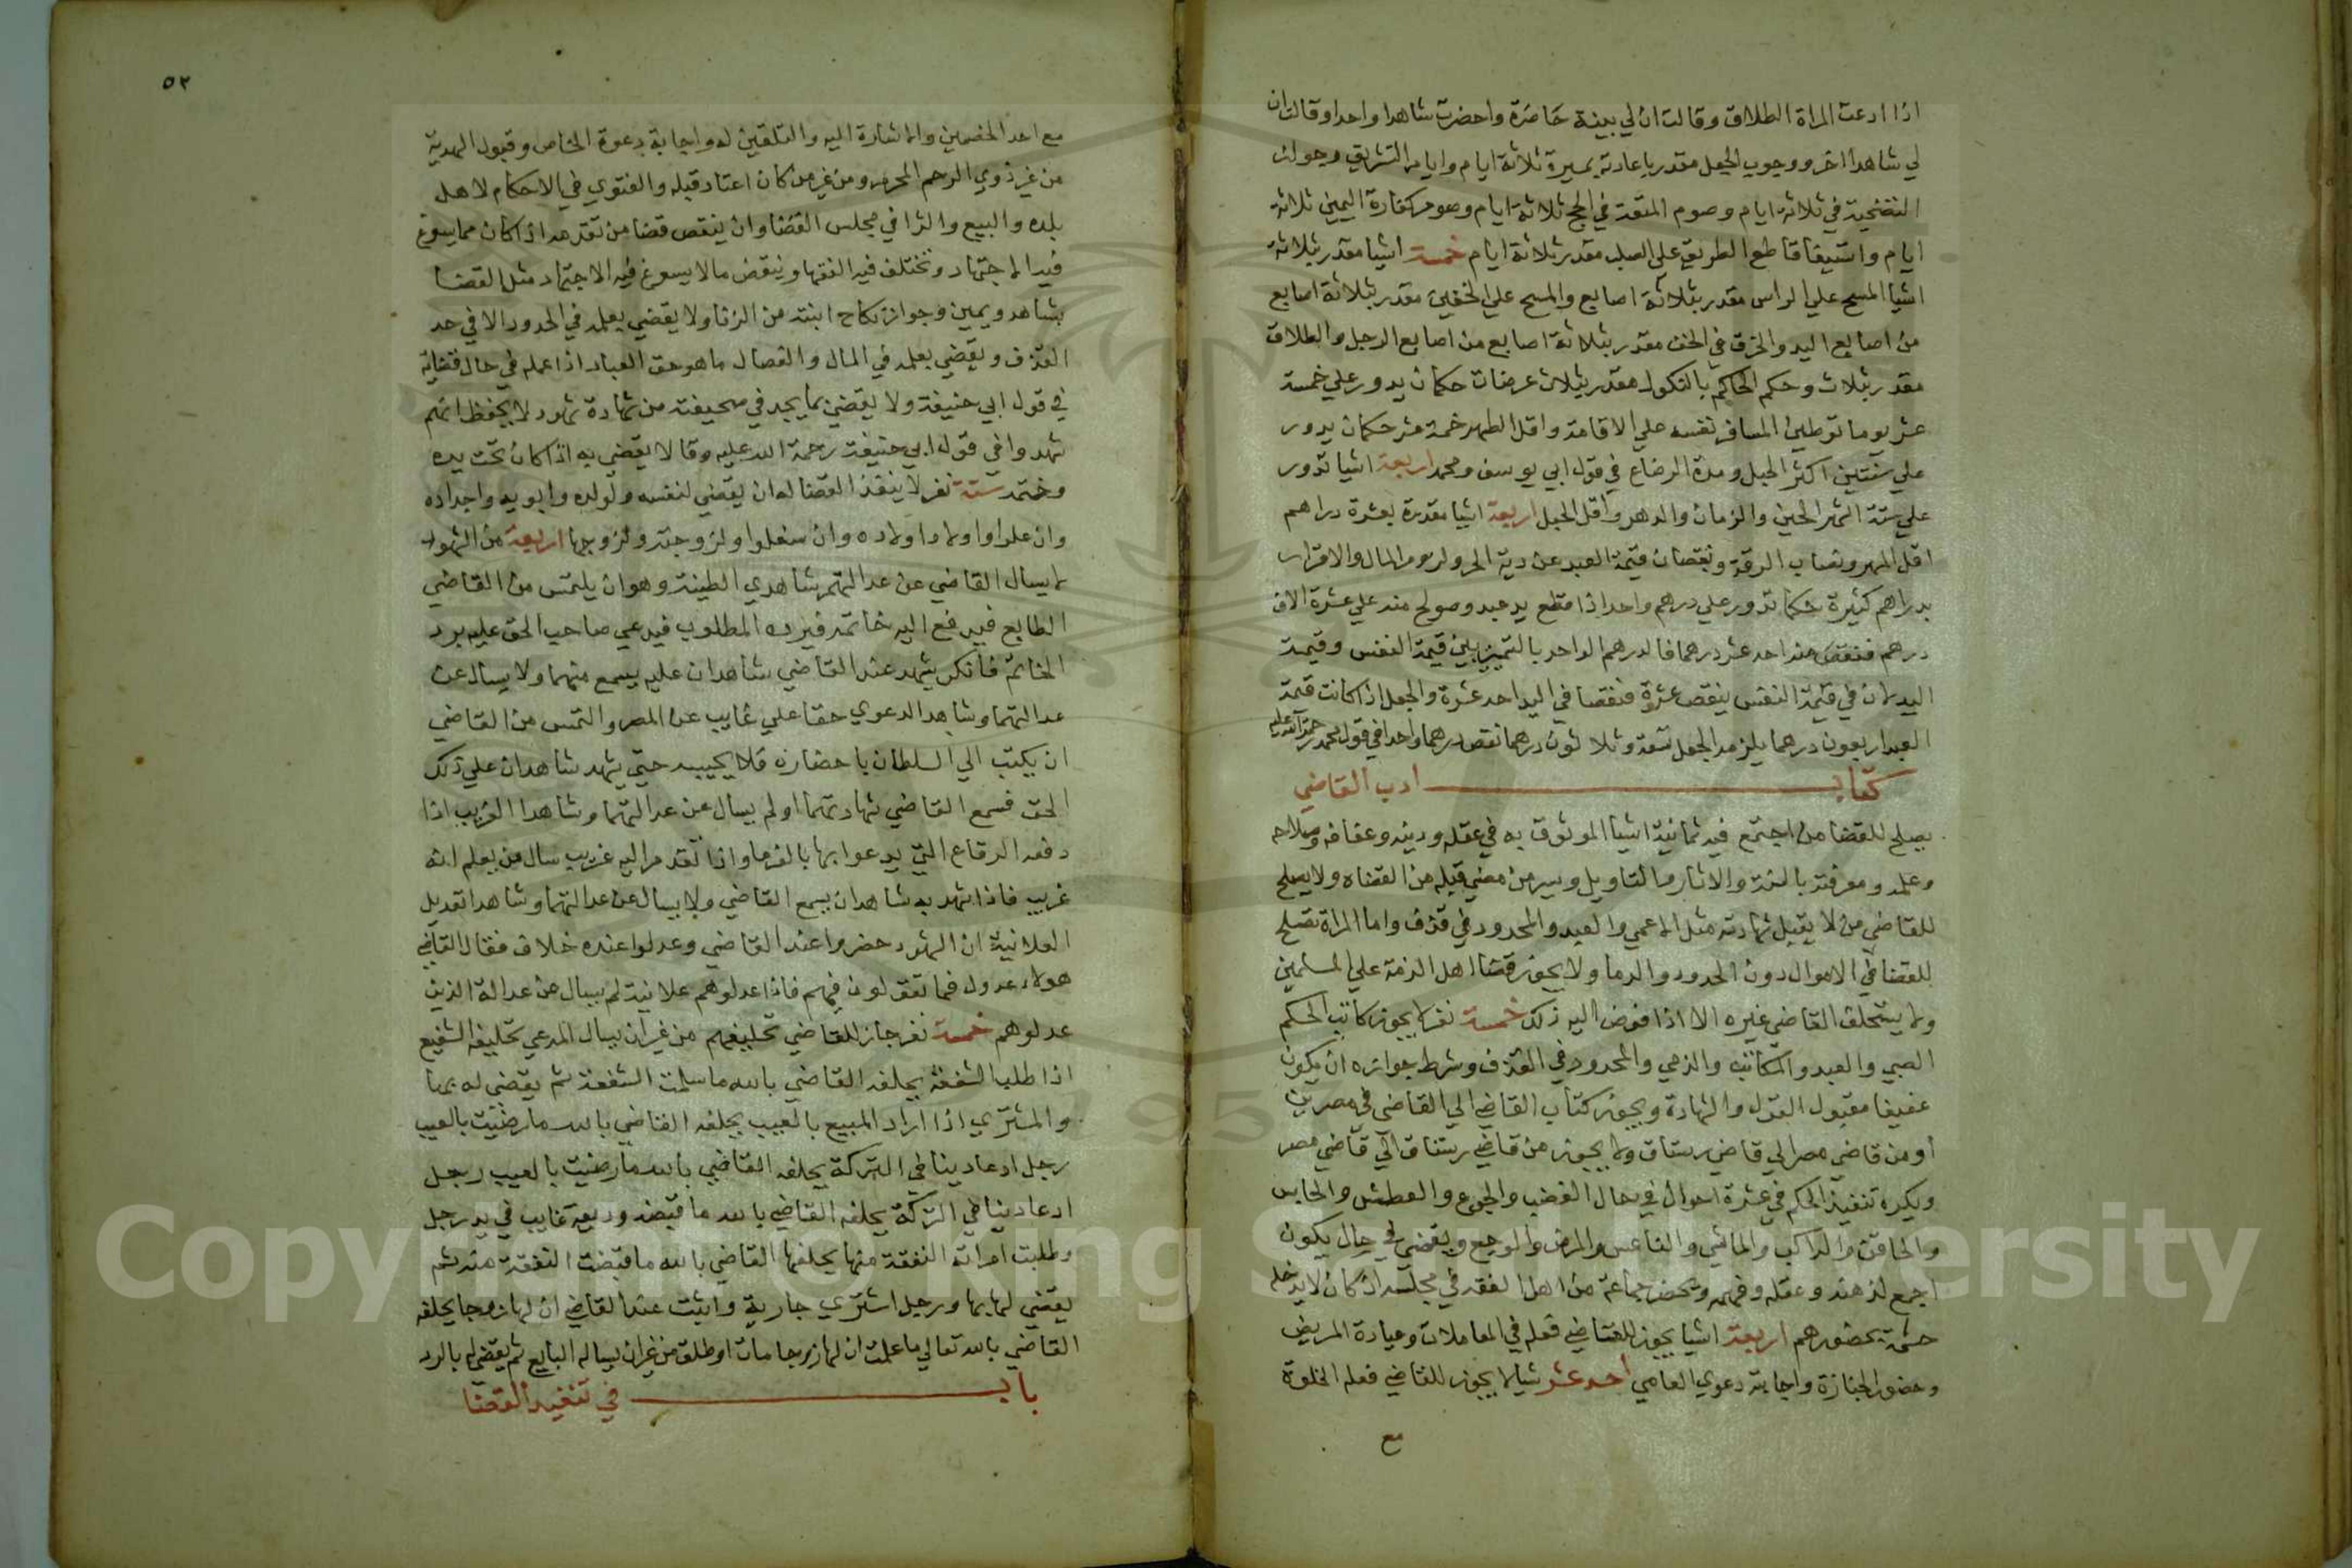 اذا ادعت المراة الطلاق وقالت ان لي بينة حاضرة واحضرت شاهدا واحدا وقالت ان
لي شاهدا اخر ووجوب الجعل مقدر باعادته بمسيرة ثلاثة ايام وايام التشريق وجواز
التضحية في ثلاثة ايام وصوم المتعة في الحج ثلاثة ايام وصوم كفارة اليمين ثلاثة
ايام واستيفا قاطع الطريق على الصلب مقدر ثلاثة ايام خمسة اشيا مقدر بثلاثة
اشيا المسح علي الراس مقدر بثلاثة اصابع والمسح علي الخفين مقدر بثلاثة اصابع
من اصابع اليد والخرق في الخف مقدر بثلاثة اصابع من اصابع الرجل والطلاق
مقدر بثلاث وحكم الحاكم بالنكول مقدر بثلاث عرضات حكمان يدور علي خمسة
عشر يوما توطين المسافر نفسه علي الاقامة واقل الطهر خمسة عشر حكمان يدور
علي سنتين اكثر الحبل ومدة الرضاع في قول ابي يوسف ومحمد اربعة اشيا تدور
علي ستة اشهر الحين والزمان والدهر واقل الحبل اربعة اشيا مقدرة بعشرة دراهم
اقل المهر ونصاب السرقة ونقصان قيمة العبد عن دية الحر ولزوم المال والاقرار
بدراهم كثيرة حكما تدور علي درهم واحد اذا قطع يد عبد وصولح منه علي عشرة الاف
درهم فنقص منه احد عشر درهما فالدرهم الواحد بالتمييز بين قيمة النفس وقيمة
اليد لان في قيمة النفس ينقص عشرة فنقصا في اليد احد عشرة والجعل اذا كانت قيمة
العبد اربعون درهما يلزمه الجعل تسعة وثلاثون درهما نقص درهما واحدا في قول محمد رحمة الله عليه
كتاب ادب القاضي
يصلح للقضا من اجتمع فيه ثمانية اشيا الموثوق به في عقله ودينه وعفافه وصلاحه
وعلمه ومعرفته بالسنة والاثار والتاويل وسير من مضي قبله من القضاه ولا يصلح
للقاضي من لا يقبل شهادته مثل الاعمي والعبد والمحدود في قذف واما المراة تصلح
للقضا في الاموال دون الحدود والدما ولا يجوز قضا اهل الذمة علي المسلمين
ولا يستخلف القاضي غيره الا اذا فوض اليه ذلك خمسة نفر لا يجوز كاتب الحكم
الصبي والعبد والمكاتب والذمي والمحدود في القذف وشرط جوازه ان يكون
عفيفا مقبول القول والشهادة ويجوز كتاب القاضي الي القاضي في مصرين
او من قاضي مصر الي قاضي رستاق ولا يجوز من قاضي رستاق الي قاضي مصر
ويكره تنفيذ الحكم في عشرة احوال في حال الغضب والجوع والعطش والحابس
والحاقن والراكب والماشي والناعس والمرض والوجع ويقضي في حال يكون
اجمع لذهنه وعقله وفهمه وتحضر جماعة من اهل الفقه في مجلسه اذ كان لا يدخله
حشمة بحضورهم اربعة اشيا يجوز للقاضي فعله في المعاملات وعيادة المريض
وحضور الجنازة واجابته دعوي العامي احد عشر شيا لا يجوز للقاضي فعله الخلوة
مع
٥٢
مع احد الخصمين والاشارة اليه والتلقين له واجابة دعوة الخاص وقبول الهدية
من غير ذوي الرحم المحرم ومن غير من كان اعتاد قبله والفتوي في الاحكام لاهل
بلده والبيع والشرا في مجلس القضا وان ينقص قضا من تقدمه اذا كان مما يسوغ
فيه الاجتهاد وتختلف فيه الفقها وينقض ما لا يسوغ فيه الاجتهاد مثل القضا
بشاهد ويمين وجواز نكاح ابنته من الزنا ولا يقضي بعلمه في الحدود الا في حد
القذف ويقضي بعلمه في المال والقصاص ما هو حق العباد اذا علمه في حال قضايه
في قول ابي حنيفة ولا يقضي بما يجد في صحيفته من شهادة شهود لا يحفظ انهم
شهدوا في قول ابي حنيفة رحمة الله عليه وقالا يقضي به اذا كان تحت يده
وختمه ستة نفر لا ينفذ القضا له ان يقضي لنفسه ولولده وابويه واجداده
وان علوا واولاد اولاده وان سفلوا ولزوجته ولزوجها اربعة من الشهود
لا يسال القاضي عن عدالتهم شاهدي الطينة وهو ان يلتمس من القاضي
الطابع فيدفع اليه خاتمه فيرده المطلوب فيدعي صاحب الحق عليه برد
الخاتم فانكر يشهد عند القاضي شاهدان عليه يسمع منهما ولا يسال عن
عدالتهما وشاهد الدعوي حقا علي غايب عن المصر والتمس من القاضي
ان يكتب الي السلطان باحضاره فلا يجيبه حتي يشهد شاهدان علي ذلك
الحق فسمع القاضي شهادتهما ولم يسال عن عدالتهما وشاهدا الغريب اذا
دفعه الرقاع التي يدعوا بها بالغرما واذا تقدم اليه غريب سال من يعلم انه
غريب فاذا شهد به شاهدان يسمع القاضي ولا يسال عن عدالتهما وشاهدا تعديل
العلانية ان الشهود حضروا عند القاضي وعدلوا عنده خلاف فقال القاضي
هولاء عدول فما تقولون فيهم فاذا عدلوهم علانية لم يسال من عدالة الذين
عدلوهم خمسة نفر جاز للقاضي تحليفهم من غير ان يسال المدعي تحليفه الشفيع
اذا طلب الشفعة يحلفه القاضي بالله ما سلمت الشفعة ثم يقضي له بها
والمشتري اذا اراد المبيع بالعيب يحلفه القاضي بالله ما رضيت بالعيب
رجل ادعا دينا في التركة يحلفه القاضي بالله ما رضيت بالعيب رجل
ادعا دينا في التركة يحلفه القاضي بالله ما قبضه وديعة غايب في يد رجل
وطلبت امراته النفقة منها يحلفها القاضي بالله ما قبضت النفقة منه ثم
يقضي لها بها ورجل اشتري جارية واثبت عند القاضي ان لها زوجا يحلفه
القاضي بالله تعالي ما علمت ان لها زوجا مات او طلق من غير ان يساله البايع ثم يقضي له بالرد
باب في تنفيذ القضا
Copyright © King Saud University
1957